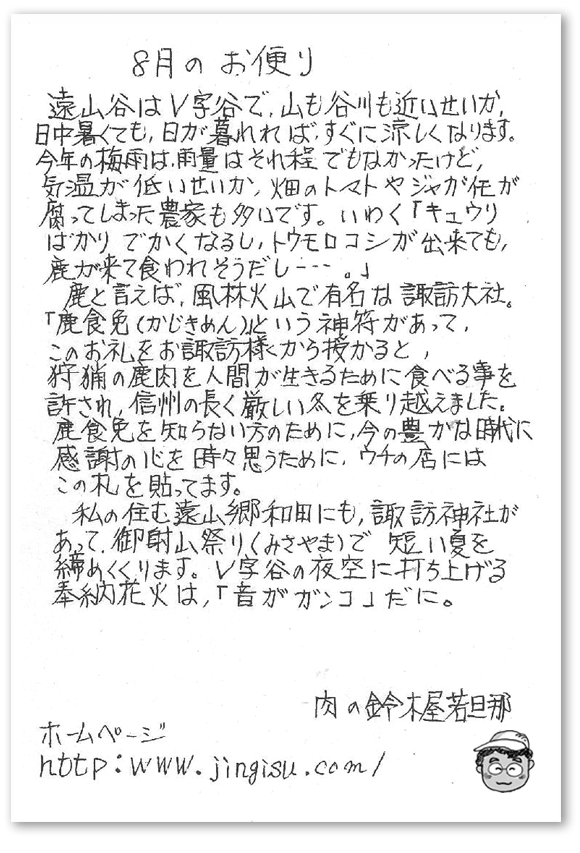 8月のお便り
遠山谷はV字谷で,山も谷川も近いせいか,
日中暑くても,日が暮れれば,すぐに涼しくなります。
今年の梅雨は,雨量はそれ程でもなかったけど,
気温が低いせいか,畑のトマトやジャガ任が
腐ってしまった農家も多いです。いわく「キュウリ
ばかりでかくなるし,トウモロコシが出来ても,
鹿が来て食われそうだし…。」
鹿と言えば,風林火山で有名な諏訪大社。
「鹿食免(かじきめん)」という神符があって,
このお礼をお諏訪様から授かると,
狩猟の鹿肉を人間が生きるために食べる事を
許され,信州の長く厳しい冬を乗り越えました。
鹿食免を知らない方のために,今の豊かな時代に
感謝の心を時々思うために,ウチの店には
この札を貼ってます。
私の住む遠山郷和田にも,諏訪神社が
あって,御射山祭り(みさやま)で短い夏を
締めくくります。V字谷の夜空に打ち上げる
奉納花火は,「音がガンコ」だに。
肉の鈴木屋若旦那
ホームページ
http:www.jingisu.com/